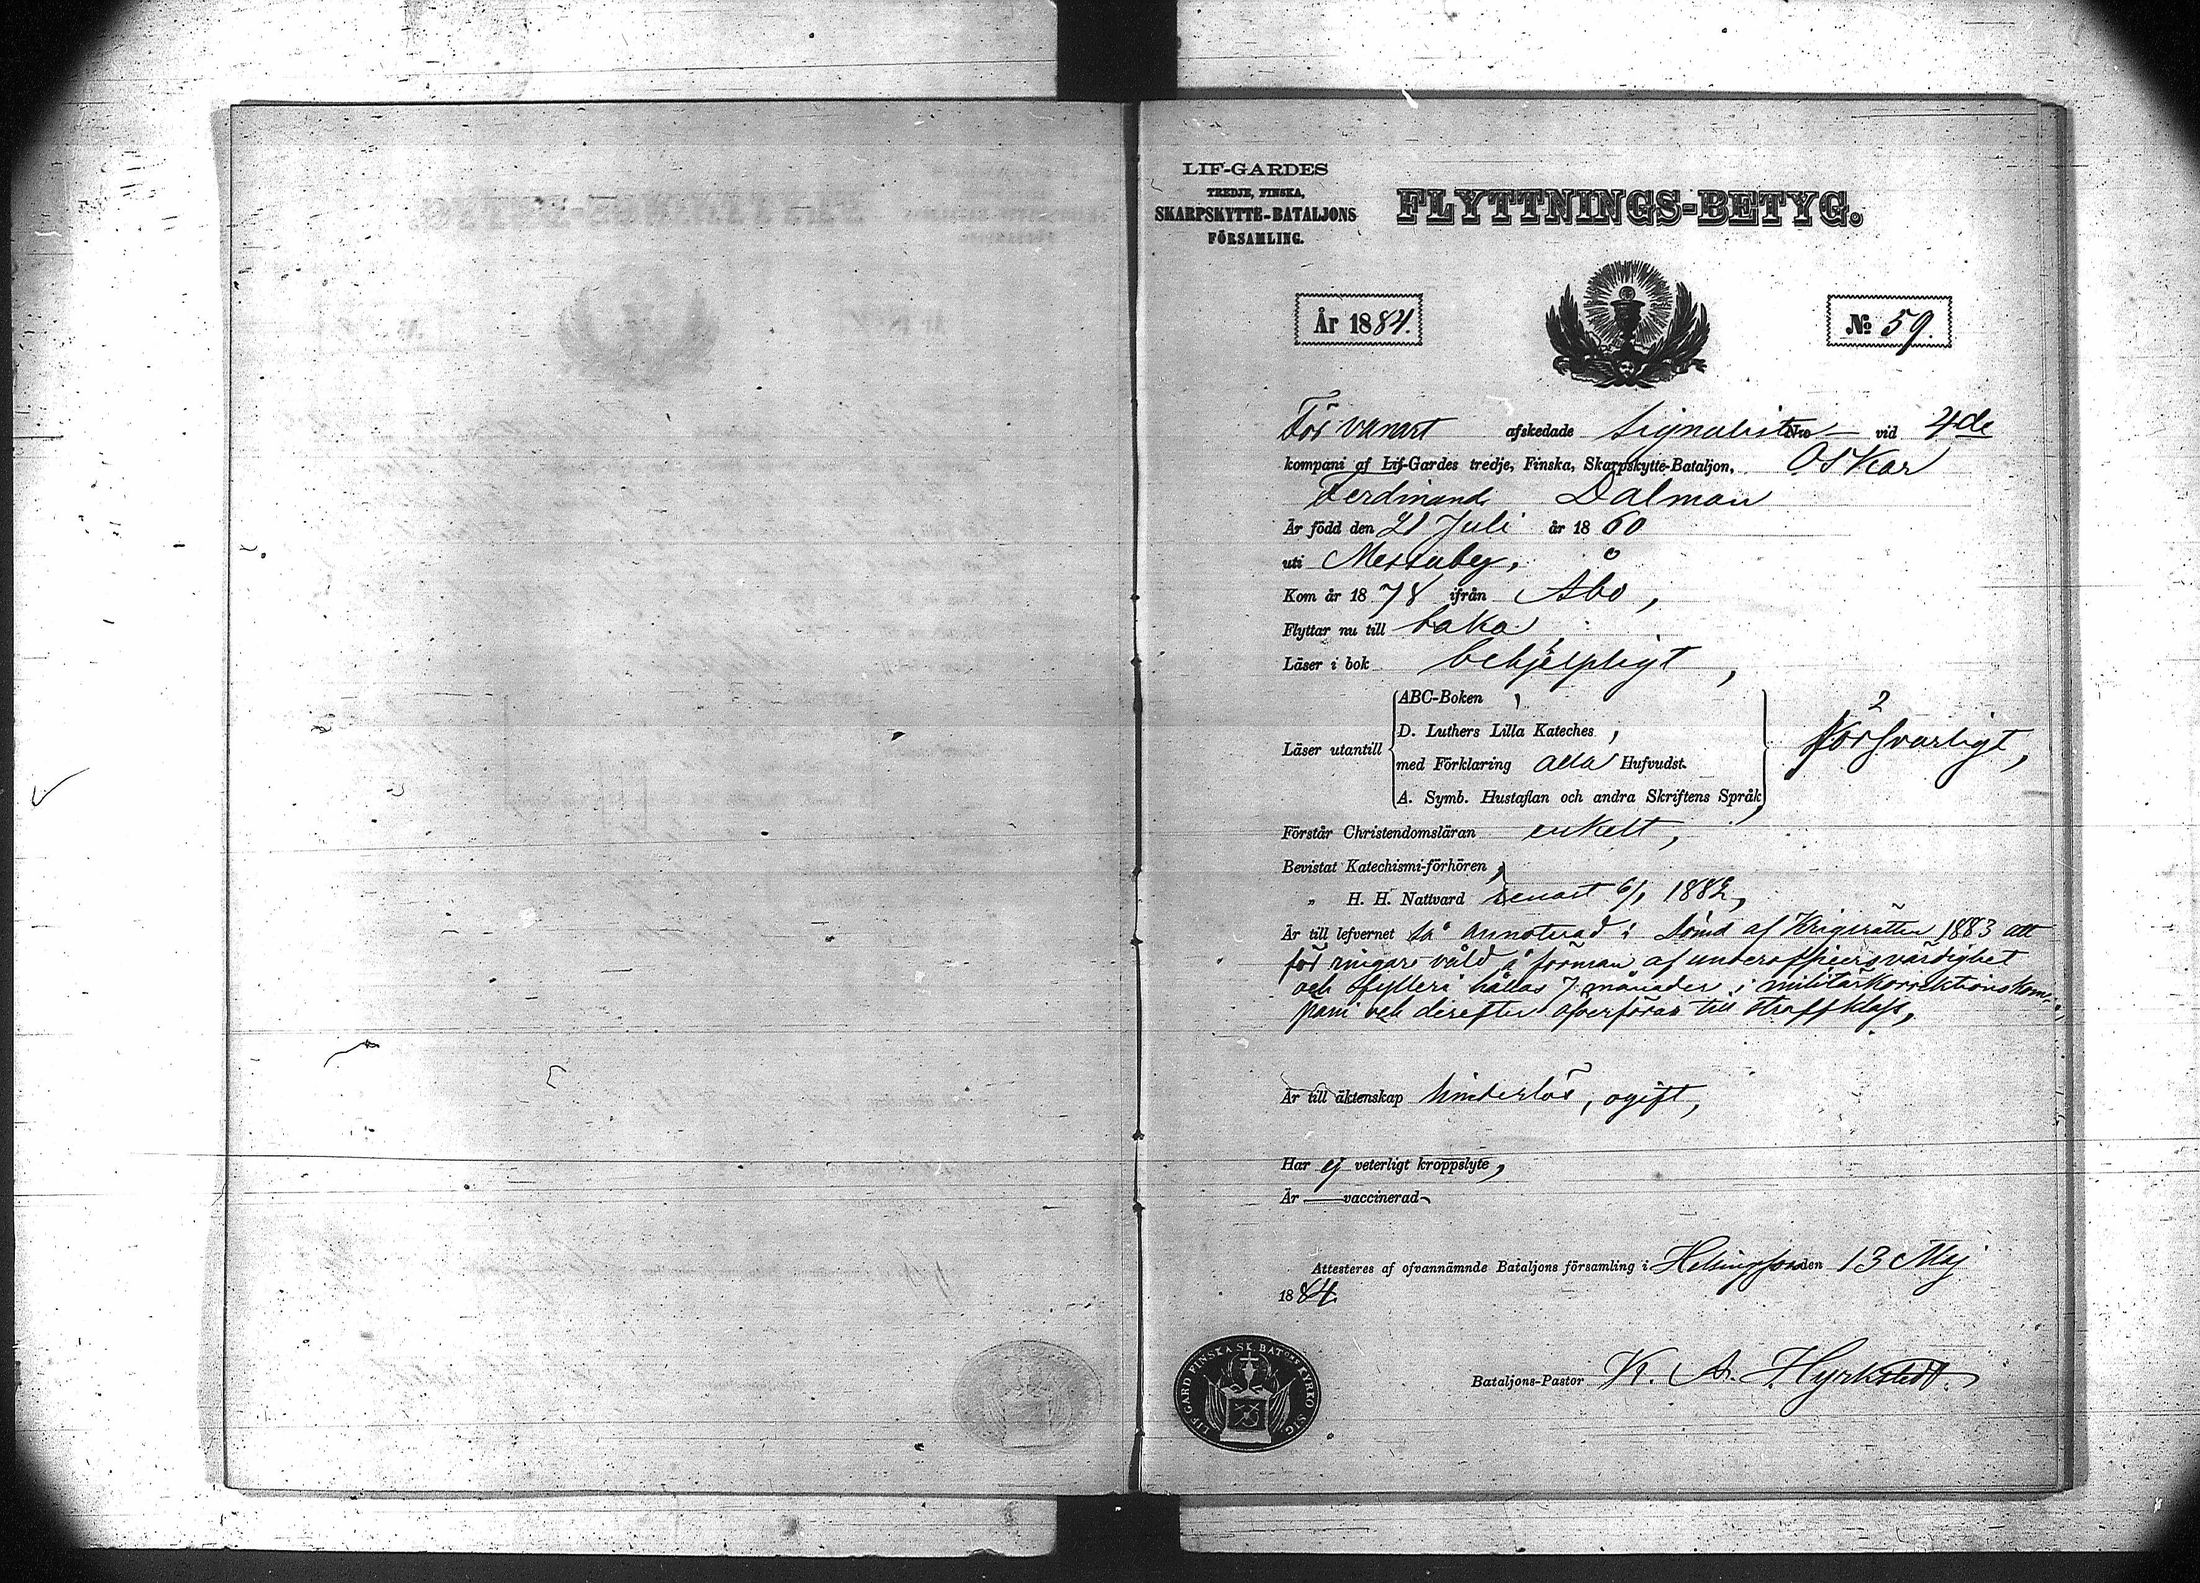 LIF-GARDES
TREDJE, FINSKA,
SKARPSKYTTE-BATALJONS
FÖRSAMLING.
FLYTTNINGS-BETYG.
År 1884.
No 59.
För vanart afskedade Signalisten No vid 4de
kompani af Lif-Gardes tredje, Finska, Skarpskytte-Bataljon, Oskar
Ferdinand Dalman
Är född den 21 Juli år 1860
uti Messuby,
Kom år 1878 ifrån Åbo,
Flyttar nu till baka
Läser i bok behjelpligt,
ABC-Boken,
D. Luthers Lilla Kateches,
Läser utantill
med Förklaring alla Hufvudst.
A. Symb. Hustaflan och andra Skriftens Språk
försvarligt,
Förstår Christendomsläran enkelt,
Bevistat Katechismi-förhören,
„ H. H. Nattvard senast 6/1 1882,
Är till lefvernet så annoterad: Dömd af Krigsrätten 1883 att
för ringare våld å förman af underofficersvärdighet
och fylleri hållas 7 månader i militärkorrektionskom-
pani och derefter öfverföras till straffklass,
Är till äktenskap hinderlös, ogift,
Har ej veterligt kroppslyte,
Är — vaccinerad
Attesteres af ofvannämnde Bataljons församling i Helsingfors den 13 Maj
1884.
Bataljons-Pastor K. A. Hyrkstedt.
LIF-GARD FINSKA SK. BAT:S KYRKO SIG.